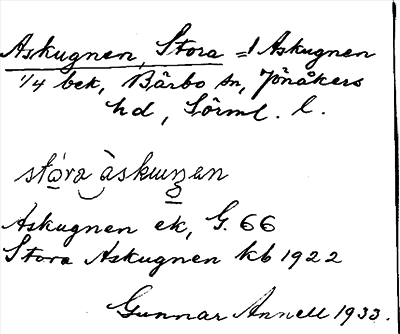 Askugnen, Stora =1 Askugnen
1/4 bek, Bärbo sn, Jönåkers
hd, Sörml. l.
stóra àskuŋen
Askugnen ek, G. 66
Stora Askugnen kb 1922
Gunnar Annell 1933.